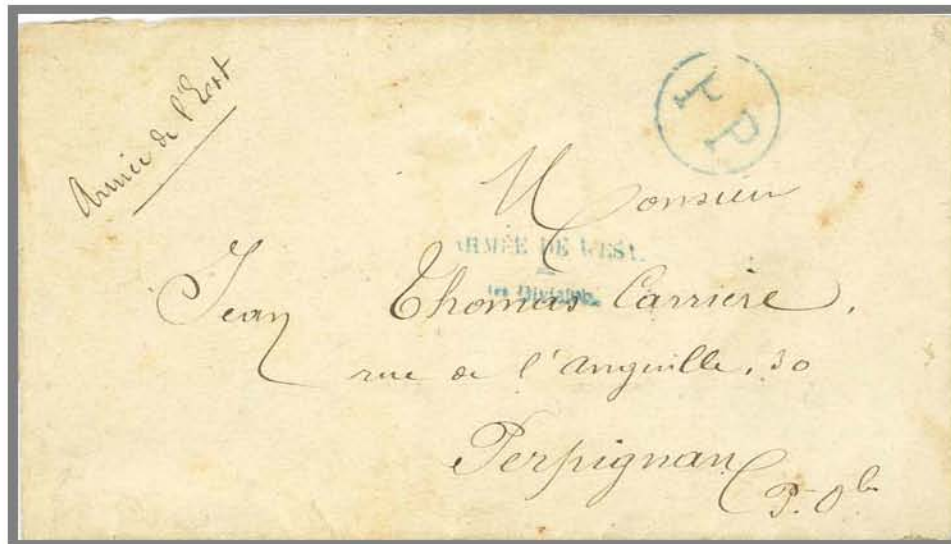 Armée de l'Est
P P
Monsieur
ARMÉE DE L'EST.
Jean Thomas Carrière,
rue de l'Anguille, 30
Perpignan
P. O.les